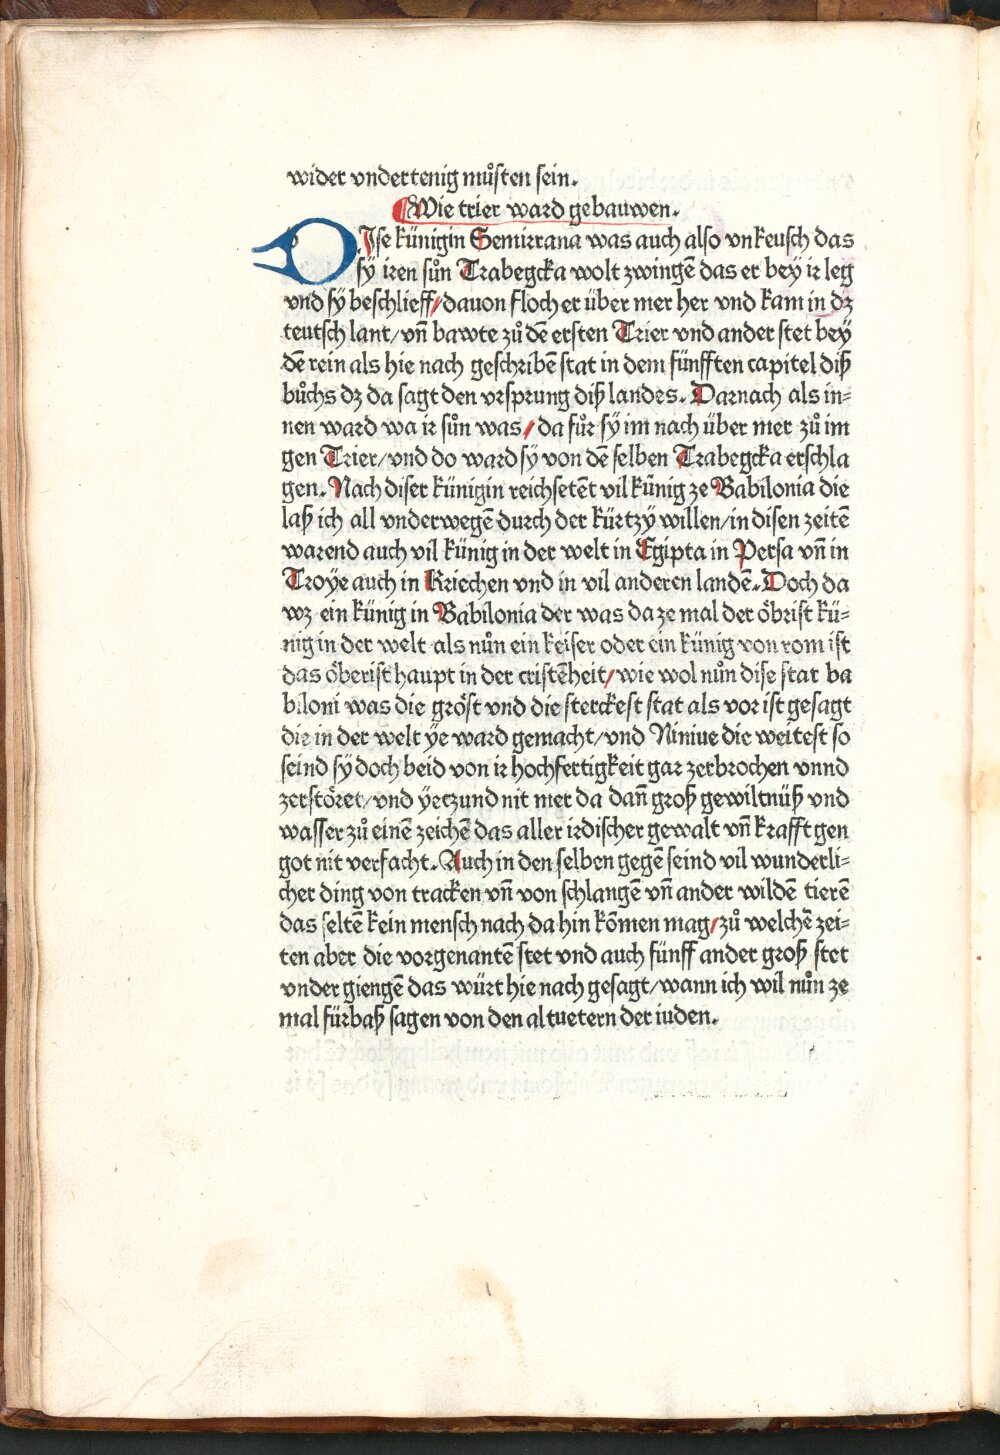 wider vndertenig můsten sein.
Wie trier ward gebauwen.
DIse künigin Semirrana was auch also vnkeusch das
sÿ iren sůn Trabegcka wolt zwingē das er beÿ ir leg
vnd sÿ beschlieff/dauon floch er über mer her vnd kam in dz
teutsch lant/vn̄ bawte zů dē ersten Trier vnd ander stet beÿ
dē rein als hie nach geschribē stat in dem fünfften capitel diß
bůchs dz da sagt den vrsprung diß landes. Darnach als in=
nen ward wa ir sůn was/da fůr sÿ im nach über mer zů im
gen Trier/vnd do ward sÿ von dē selben Trabegcka erschla
gen. Nach diser künigin reichsetēt vil künig ze Babilonia die
laß ich all vnderwegē durch der kürtzÿ willen/in disen zeitē
warend auch vil künig in der welt in Egipta in Persa vn̄ in
Troÿe auch in Kriechen vnd in vil anderen landē. Doch da
wz ein künig in Babilonia der was da ze mal der öbrist kü=
nig in der welt als nůn ein keiser oder ein künig von rom ist
das öberist haupt in der cristēheit/wie wol nůn dise stat ba
biloni was die gröst vnd die sterckest stat als vor ist gesagt
die in der welt ÿe ward gemacht/vnd Niniue die weitest so
seind sÿ doch beid von ir hochfertigkeit gar zerbrochen vnnd
zerstöret/vnd ÿetzund nit mer da dan̄ groß gewiltnüß vnd
wasser zů einē zeichē das aller irdischer gewalt vn̄ krafft gen
got nit verfacht. Auch in den selben gegē seind vil wunderli=
cher ding von tracken vn̄ von schlangē vn̄ ander wildē tierē
das seltē kein mensch nach da hin kōmen mag/zů welchē zei=
ten aber die vorgenantē stet vnd auch fünff ander groß stet
vnder giengē das würt hie nach gesagt/wann ich wil nůn ze
mal fürbaß sagen von den altuetern der iuden.